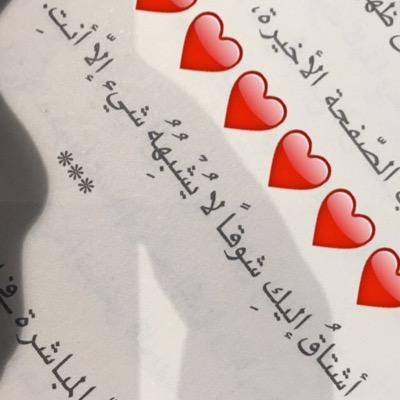 الصّفحة الأخيرة،
أشتاقُ إليكِ شوقاً لا يُشْبِهُهُ شيء إلّا أنتِ.
***
المباشرة